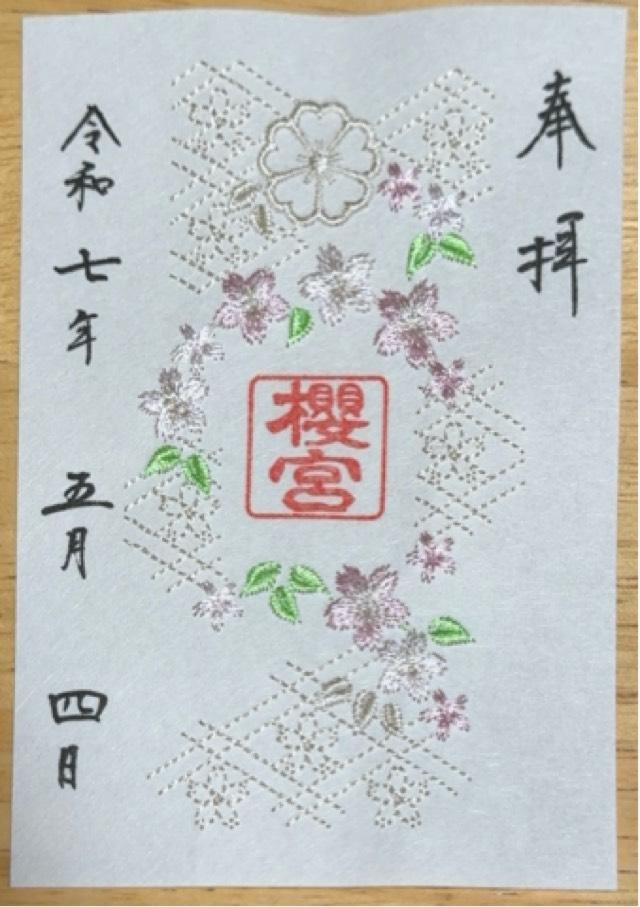 奉拝
櫻宮
令和七年五月四日